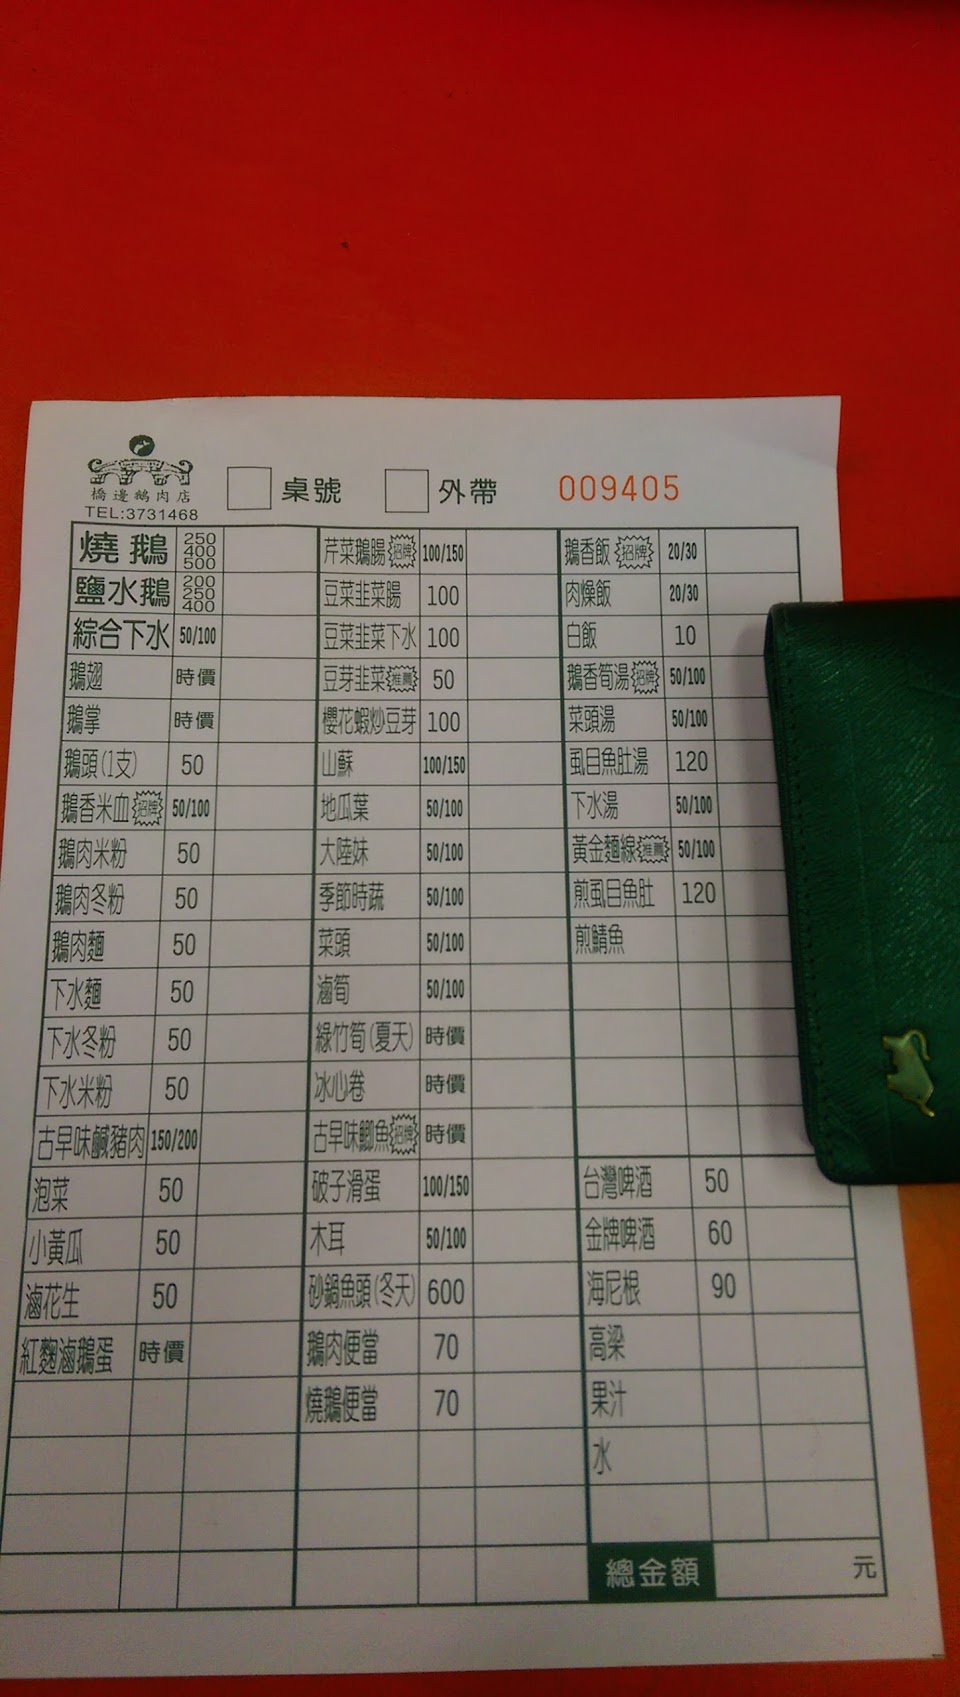 橋邊鵝肉店
TEL:3731468
桌號
外帶
009405
燒鵝 250 400 500
鹽水鵝 200 250 400
綜合下水 50/100
鵝翅 時價
鵝掌 時價
鵝頭(1支) 50
鵝香米血 招牌 50/100
鵝肉米粉 50
鵝肉冬粉 50
鵝肉麵 50
下水麵 50
下水冬粉 50
下水米粉 50
古早味鹹豬肉 150/200
泡菜 50
小黃瓜 50
滷花生 50
紅麴滷鵝蛋 時價
芹菜鵝腸 招牌 100/150
豆菜韭菜腸 100
豆菜韭菜下水 100
豆芽韭菜 推薦 50
櫻花蝦炒豆芽 100
山蘇 100/150
地瓜葉 50/100
大陸妹 50/100
季節時蔬 50/100
菜頭 50/100
滷筍 50/100
綠竹筍(夏天) 時價
冰心卷 時價
古早味鯽魚 招牌 時價
破子滑蛋 100/150
木耳 50/100
砂鍋魚頭(冬天) 600
鵝肉便當 70
燒鵝便當 70
鵝香飯 招牌 20/30
肉燥飯 20/30
白飯 10
鵝香筍湯 招牌 50/100
菜頭湯 50/100
虱目魚肚湯 120
下水湯 50/100
黃金麵線 推薦 50/100
煎虱目魚肚 120
煎鯖魚
台灣啤酒 50
金牌啤酒 60
海尼根 90
高梁
果汁
水
總金額 元